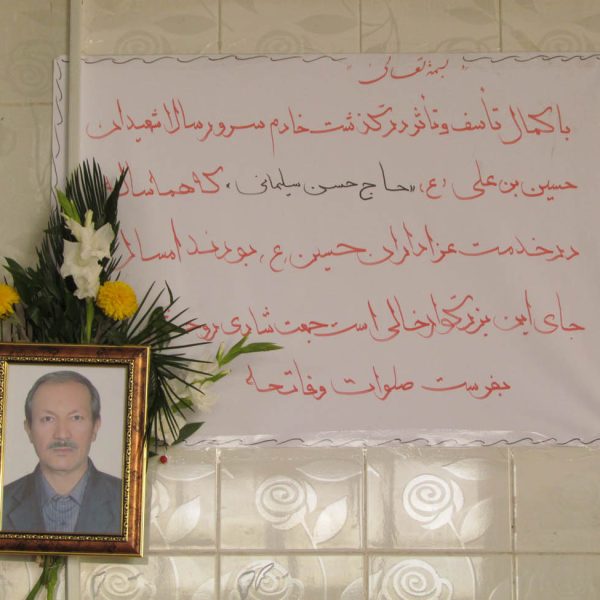 بسمه تعالی
با کمال تأسف و تأثر درگذشت خادم سرور سالار شهیدان
حسین بن علی (ع) «حاج حسن سلیمانی» که همه ساله
در خدمت عزاداران حسین (ع) بودند امسال
جای این بزرگوار خالی است جهت شادی روح
بفرست صلوات و فاتحه